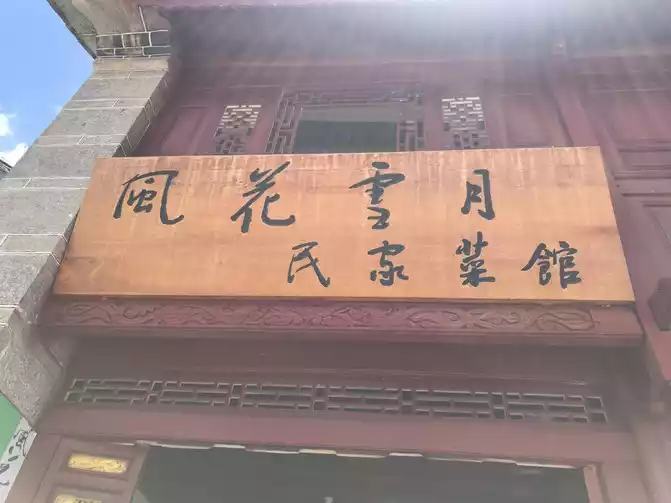 風花雪月
民家菜館